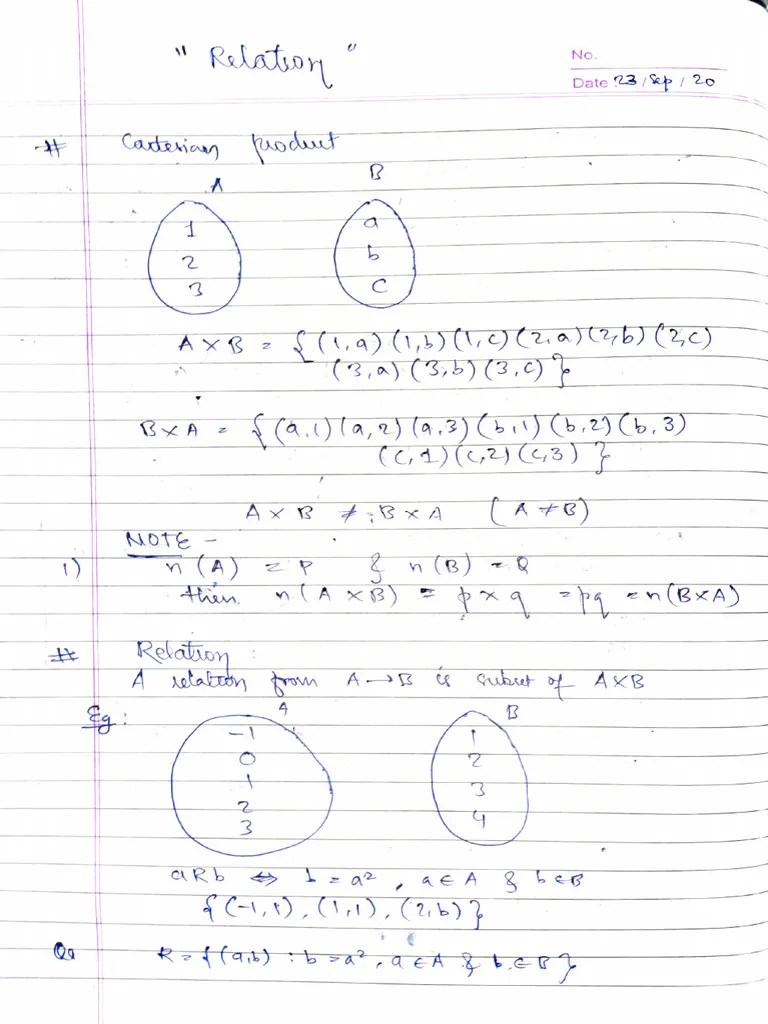 " Relation "
No.
Date 23 / Sep / 20
# Cartesian product
A B
1 a
2 b
3 c
A × B = {(1,a) (1,b) (1,c) (2,a) (2,b) (2,c)
(3,a) (3,b) (3,c) }
B × A = {(a,1) (a,2) (a,3) (b,1) (b,2) (b,3)
(c,1) (c,2) (c,3) }
A × B ≠ B × A (A ≠ B)
NOTE -
1) n (A) = P & n (B) = Q
then n (A × B) = p × q = pq = n (B×A)
# Relation :
A relation from A → B is subset of A×B
Eg : A B
-1 1
0 2
1 3
2 4
3
aRb ⇔ b = a² , a ∈ A & b ∈ B
{ (-1,1) , (1,1) , (2,b) }
Or R = {(a,b) : b = a² , a ∈ A & b ∈ B }